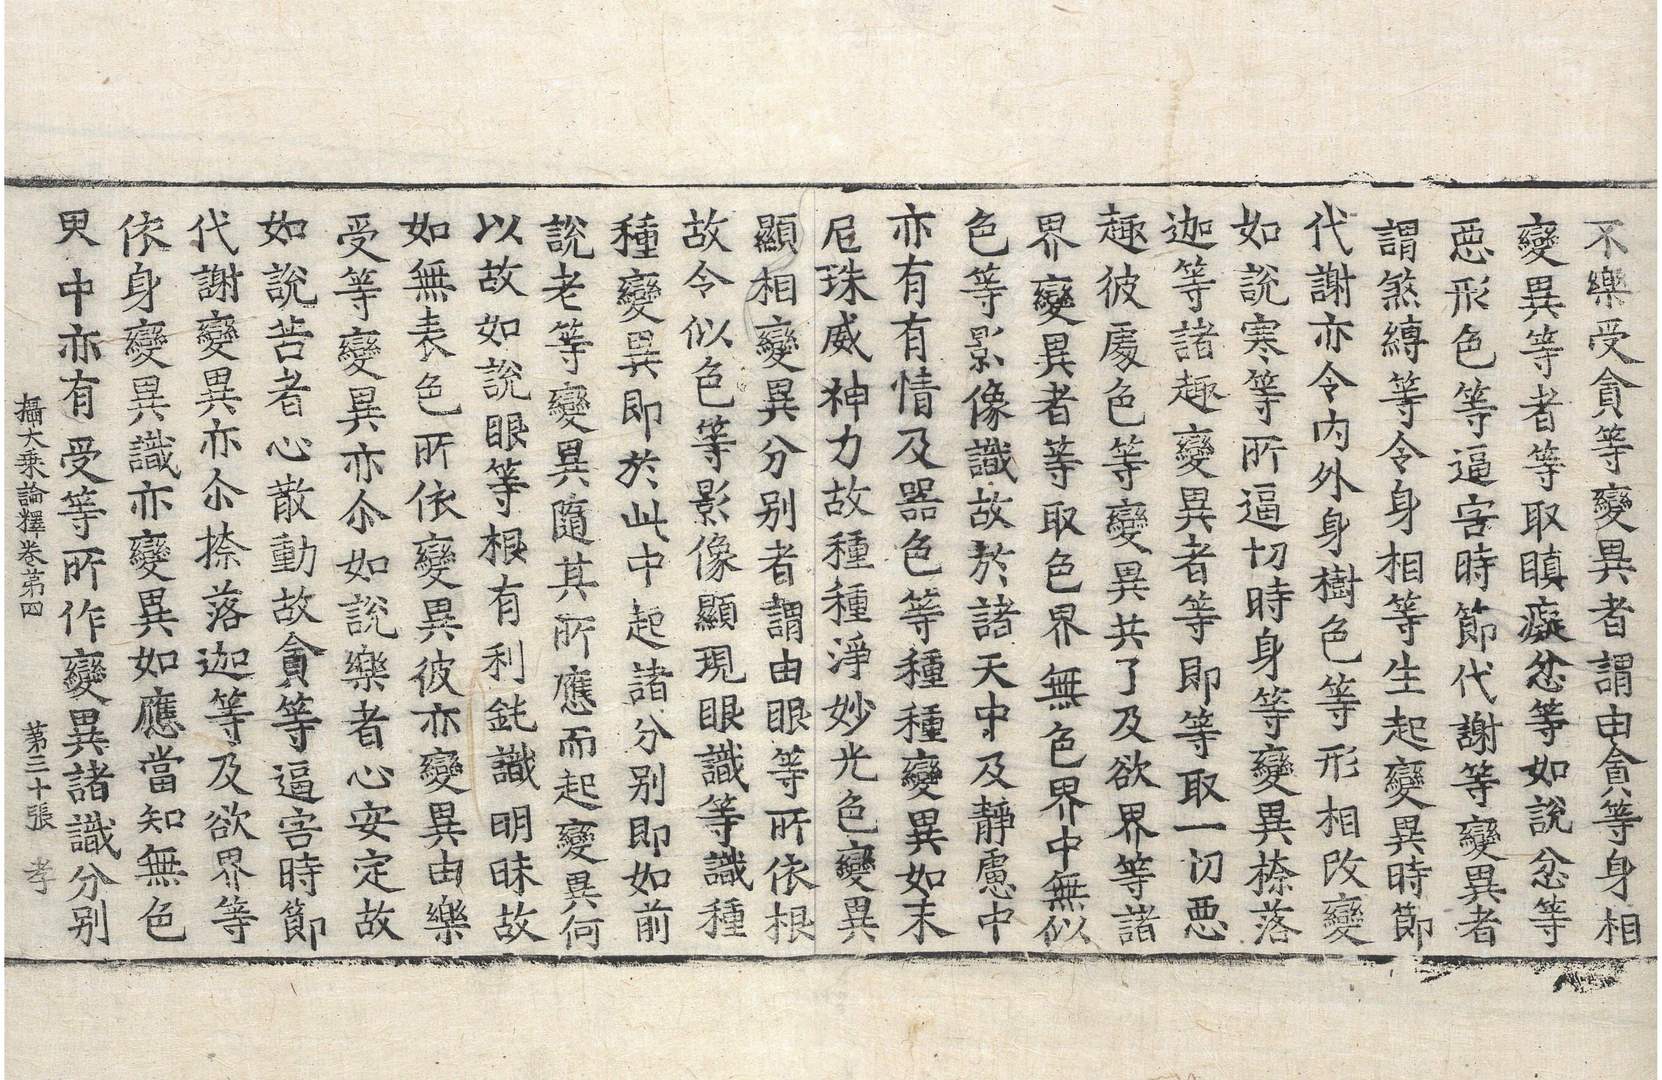 不樂受貪等變異者謂由貪等身相
變異等者等取瞋癡忿等如說忿等
惡形色等逼害時節代謝等變異者
謂煞縛等令身相等生起變異時節
代謝亦令內外身樹色等形相改變
如說寒等所逼切時身等變異捺落
迦等諸趣變異者等即等取一切惡
趣彼處色等變異共了及欲界等諸
界變異者等取色界無色界中無似
色等影像識故於諸天中及靜慮中
亦有有情及器色等種種變異如末
尼珠威神力故種種淨妙光色變異
顯相變異分別者謂由眼等所依根
故令似色等影像顯現眼識等識種
種變異即於此中起諸分別即如前
說老等變異隨其所應而起變異何
以故如說眼等根有利鈍識明昧故
如無表色所依變異彼亦變異由樂
受等變異亦尒如說樂者心安定故
如說苦者心散動故貪等逼害時節
代謝變異亦尒捺落迦等及欲界等
依身變異識亦變異如應當知無色
界中亦有受等所作變異諸識分別
攝大乘論釋卷第四　第三十張　孝